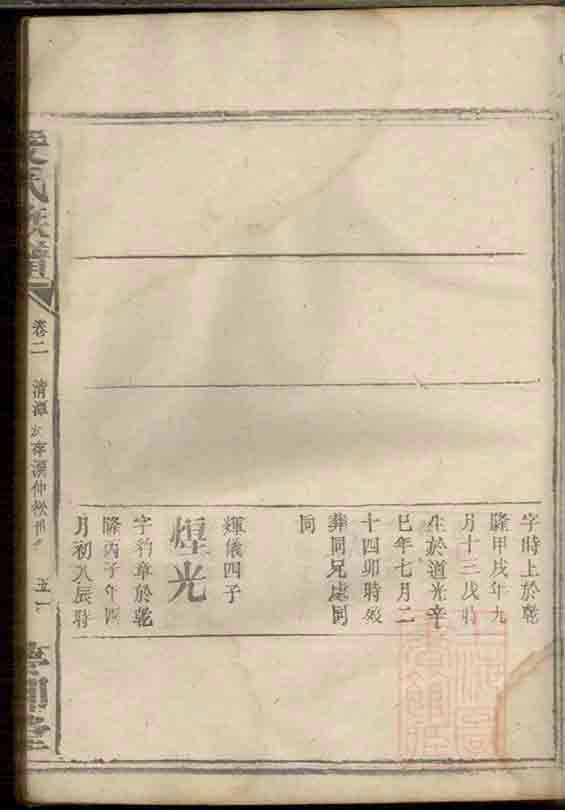 字時上於乾
隆甲戌年九
月十三戌時
生於道光辛
巳年七月二
十四卯時歿
葬同兄處同
同
輝儀四子
煌光
字 章於乾
隆丙子年四
月初八辰時
氏族譜
卷二
清潭 存漢仲
五一